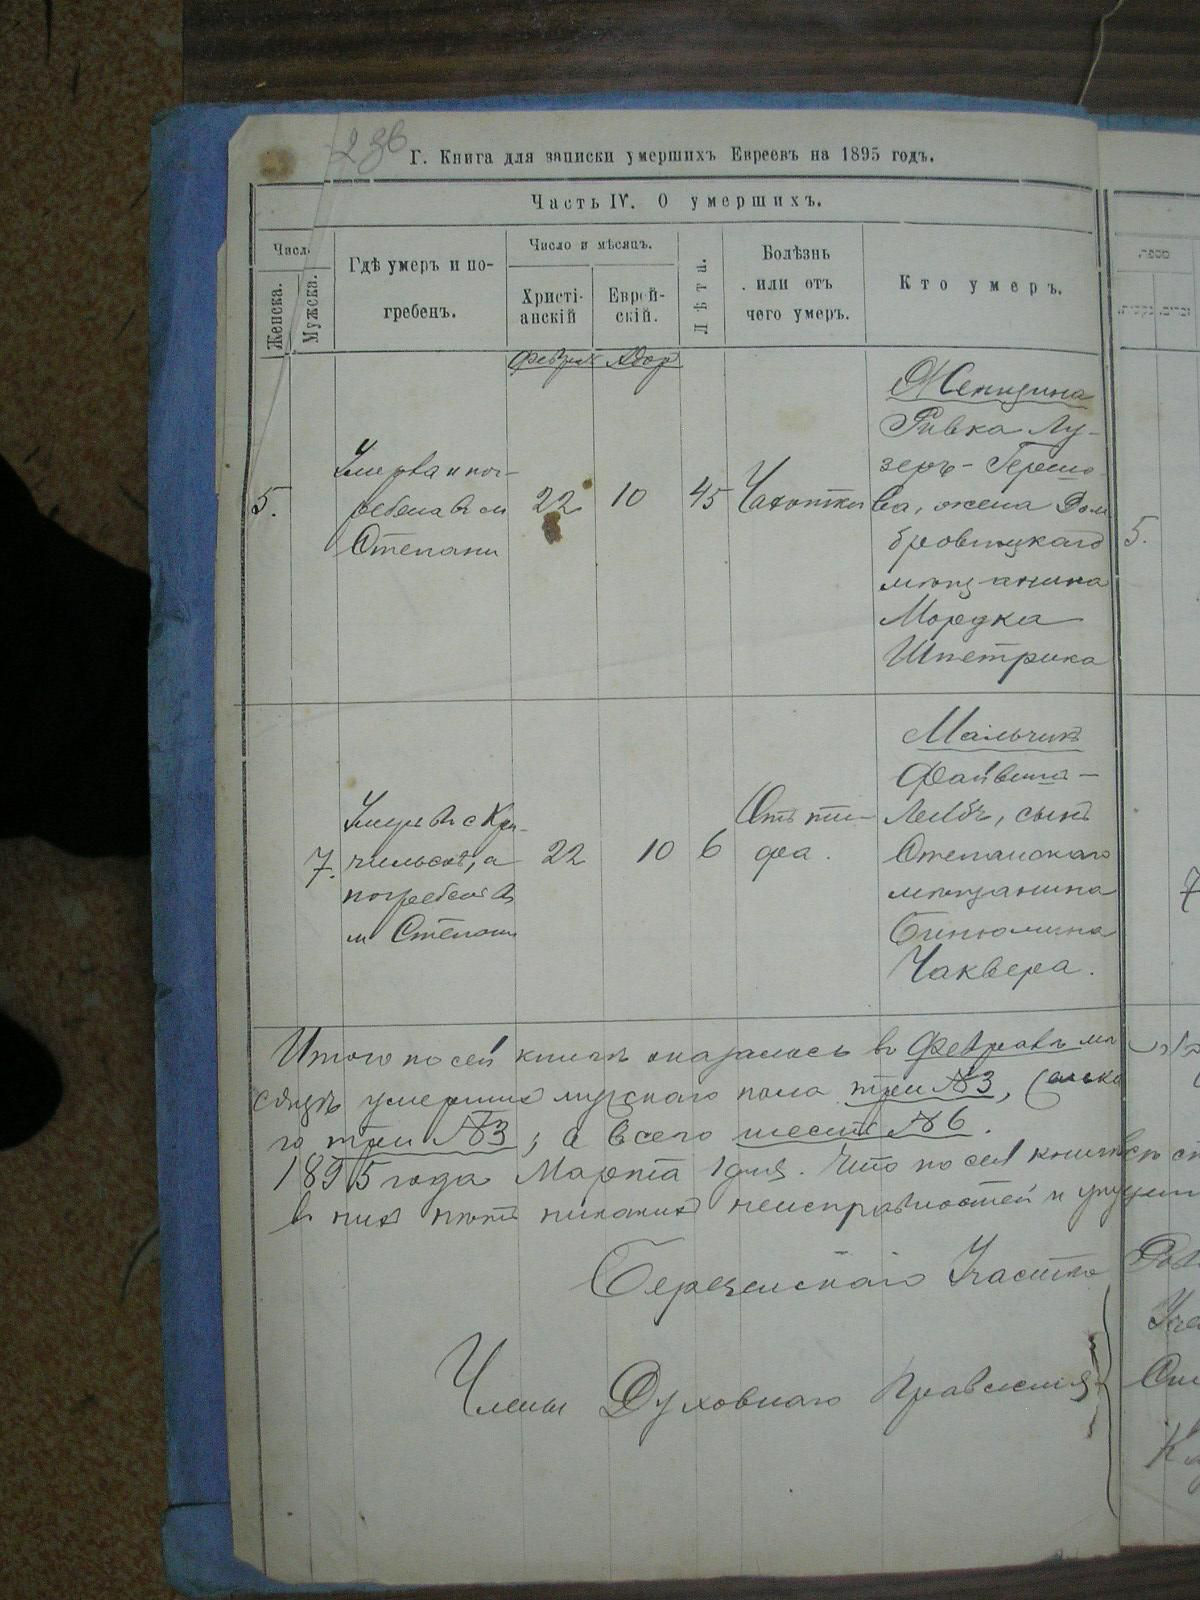 Г. Книга для записки умершихъ Евреевъ на 1895 годъ.
Часть IV. О умершихъ.
Число
Женска.
Мужска.
Гдѣ умеръ и по-
гребенъ.
Число и мѣсяцъ.
Христі-
анскій
Еврей-
скій.
Лѣта.
Болѣзнь
или отъ
чего умеръ.
Кто умеръ.
Адор
5.
Умерла и пог-
ребена въ м
Степани
22
10
45
Чахотки
Женщина
Ривка Лу-
зеръ-Герсшо
ва, жена Дом
бровицкаго
мѣщанина
Мордка
Шпетрика
5.
7.
Умеръ въ с
чильскѣ, а
погребенъ въ
м Степани
22
10
6
Отъ ти-
фа.
Мальчикъ
Файвиша-
Лейбъ, сынъ
Степанскаго
мѣщанина
Бинюмина
Чаквера.
7
Итого по сей книгѣ оказалось въ Февралѣ мѣ
сяцѣ умершихъ мужскаго пола три №3,
го три №3, а всего шесть №6.
1895 года Марта 1 дня. Что по сей книгѣ
въ нихъ нѣтъ никакихъ неисправностей и
Березенскаго Участка
Члены Духовнаго Правленія